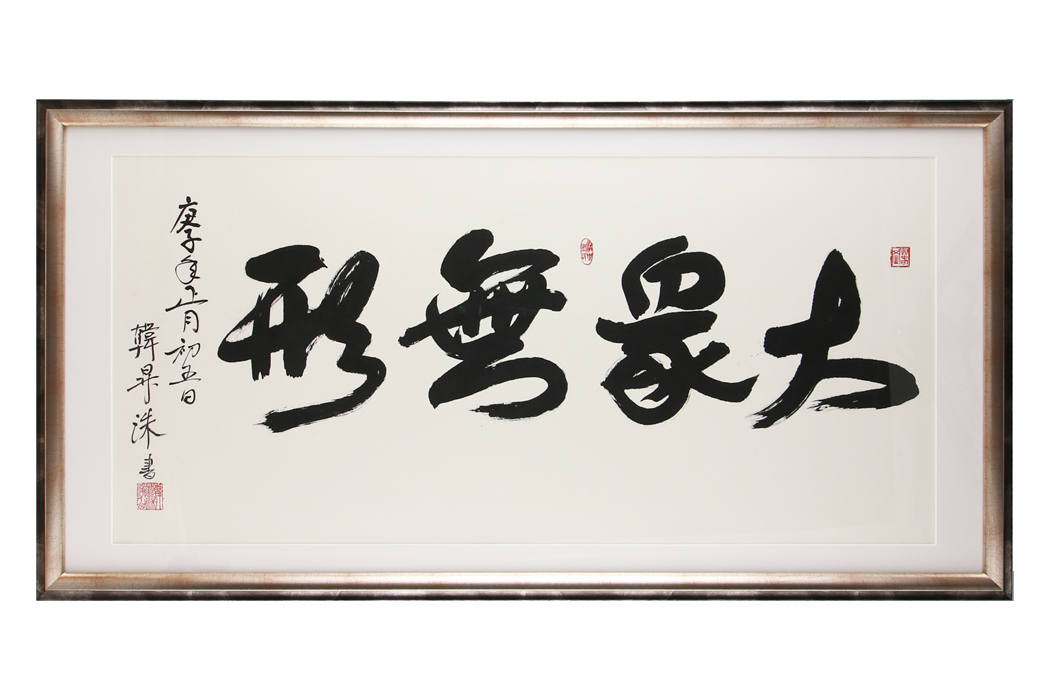 大象無形
庚子年正月初五日
韓昇洙書